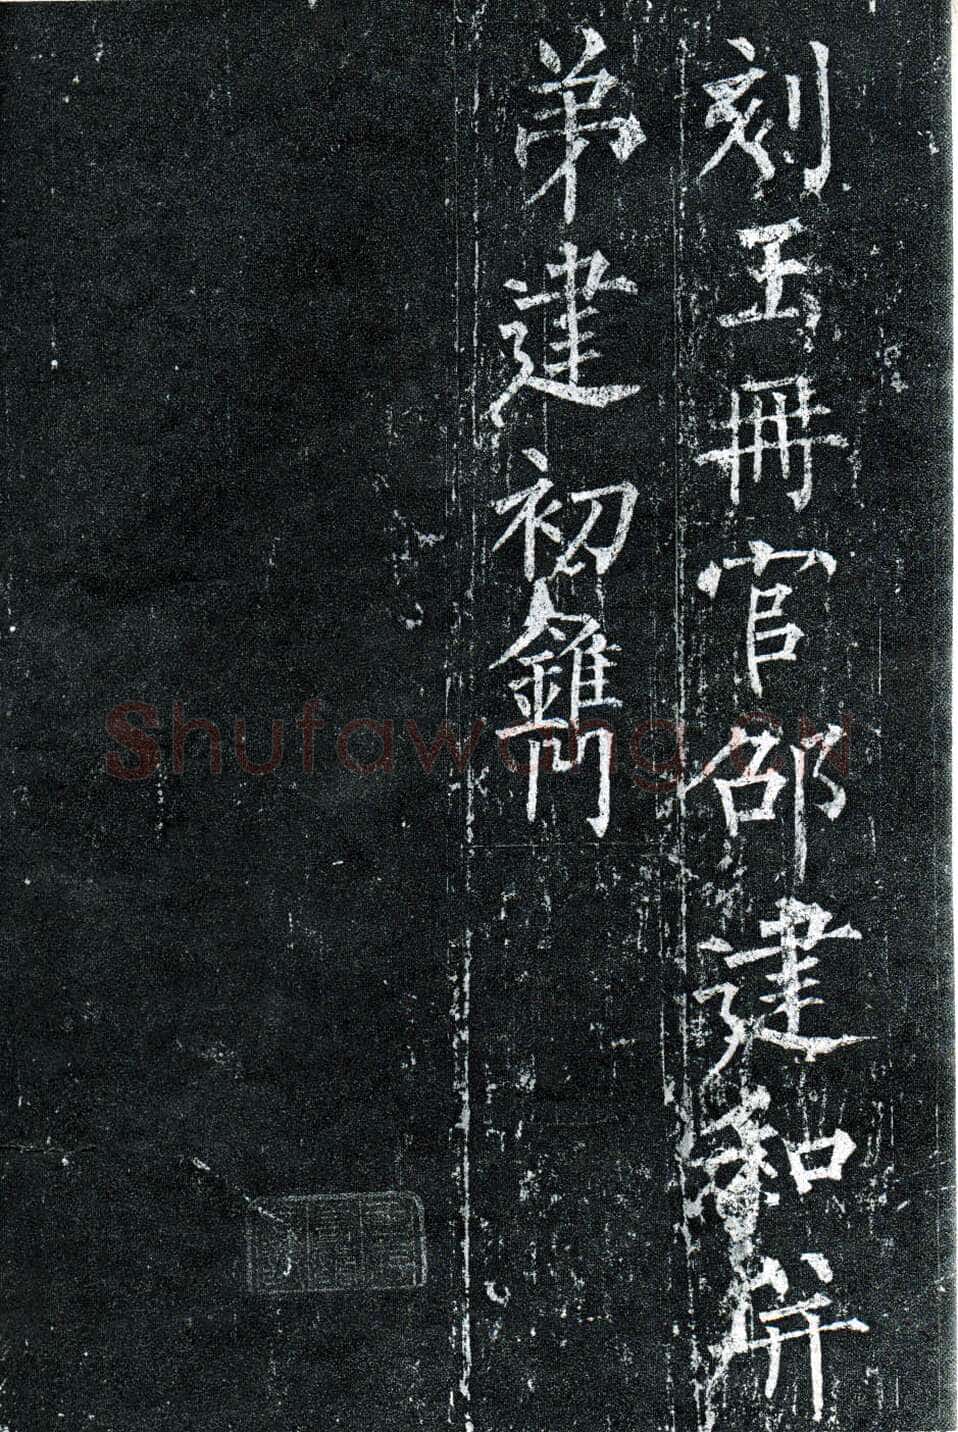 刻玉冊官邵建和併
弟建初鐫
Shufawang.CN